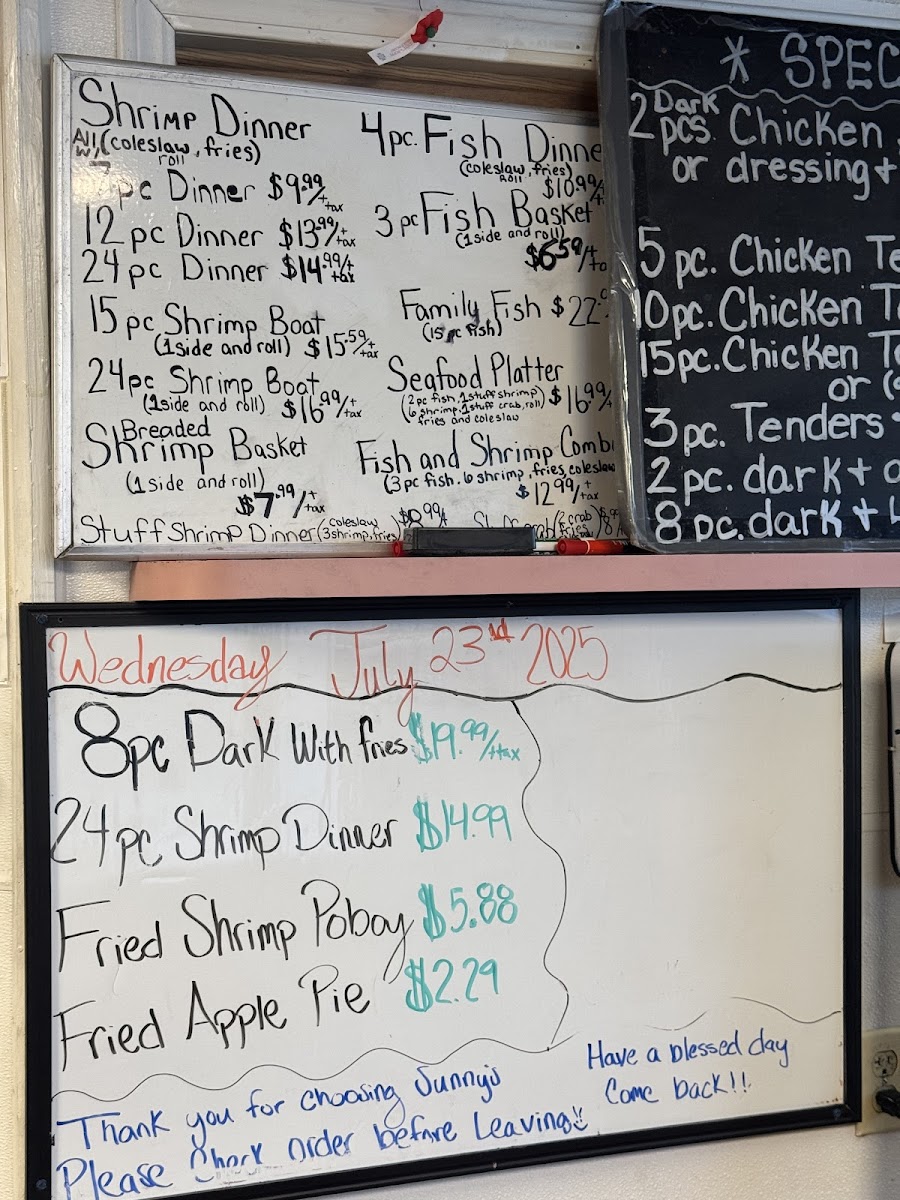 Shrimp Dinner
All W/ (coleslaw, fries)
roll
7pc Dinner $9.99/+tax
12 pc Dinner $13.99/+tax
24 pc Dinner $14.99/+tax
15 pc Shrimp Boat
(1side and roll) $15.59/+tax
24pc Shrimp Boat
(1side and roll) $16.99/+tax
Breaded
Shrimp Basket
(1side and roll)
$7.99/+tax
Stuff Shrimp Dinner (coleslaw
3shrimp, fries)
4pc. Fish Dinne
(coleslaw, fries)
Roll
$10.99/+
3 pc Fish Basket
(1side and roll)
$6.59/+ta
Family Fish $22.
(15 pc fish)
Seafood Platter
(2pc fish, 1stuff shrimp) $16.99/
6 shrimp, 1stuff crab, roll)
fries and coleslaw
Fish and Shrimp Comb
(3pc fish, 6 shrimp, fries, coleslaw
$12.99/+tax
* SPEC
Dark
2 pcs. Chicken
or dressing +
5 pc. Chicken Te
10pc. Chicken T
15pc. Chicken Te
or (s
3pc. Tenders
2 pc. dark +
8 pc. dark +
Wednesday July 23rd 2025
8pc Dark With fries $19.99/+tax
24pc Shrimp Dinner $14.99
Fried Shrimp Poboy $5.88
Fried Apple Pie $2.29
Thank you for choosing Sunny's
Please Check order before Leaving
Have a blessed day
Come back!!